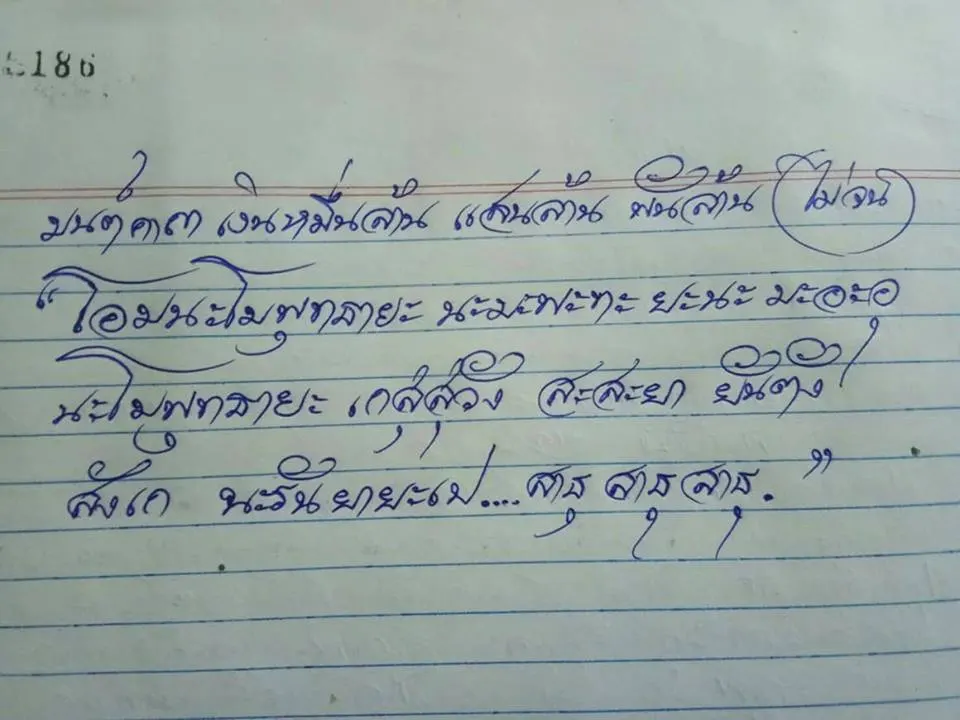 186
มนต์คาถา เงินหมื่นล้าน แสนล้าน พันล้าน ไม่จน
"โอมนะโมพุทธายะ นะมะพะทะ ยะนะ มะอะอุ
นะโมพุทธายะ เกสุสุวัง สะสะยา ยันตัง
สังเก นะรัน ยายะเป....สาธุ สาธุ สาธุ."